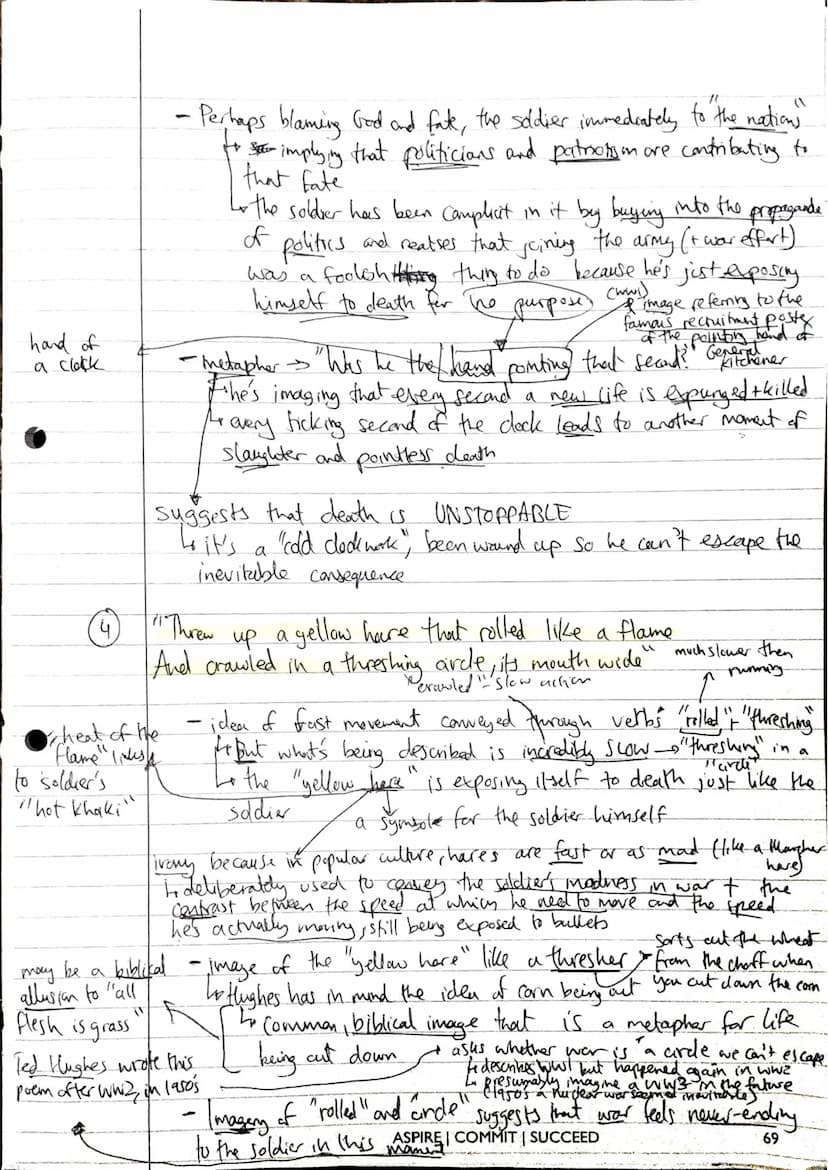 - Perhaps blaming God and fate, the soldier immediately to "the nations"
↳ implying that politicians and patriotism are contributing to
that fate
↳ The soldier has been complicit in it by buying into the propaganda
of politics and realises that joining the army (+ war effort)
was a foolish thing to do because he's just exposing
himself to death for "no purpose"
(WW1)
image referring to the
famous recruitment poster
of the pointing hand of
General
Kitchener
hand of
a clock
- metaphor → "Was he the hand pointing that second?"
↳ he's imaging that every second a new life is expunged + killed
↳ every ticking second of the clock leads to another moment of
slaughter and pointless death
suggests that death is UNSTOPPABLE
↳ it's a "cold clockwork", been wound up so he can't escape the
inevitable consequence
④ "Threw up a yellow hare that rolled like a flame
And crawled in a threshing circle, its mouth wide"
much slower then
running
"crawled" - slow action
- idea of fast movement conveyed through verbs "rolled" + "threshing"
↳ But what's being described is incredibly slow → "threshing" in a
"circle"
↳ the "yellow hare" is exposing itself to death just like the
soldier
heat of the
"flame" links
to soldier's
"hot khaki"
a symbol for the soldier himself
irony because in popular culture, hares are fast or as mad (like a March
hare)
↳ deliberately used to convey the soldier's madness in war + the
contrast between the speed at which he need to move and the speed
he's actually moving, still being exposed to bullets
- image of the "yellow hare" like a thresher
sorts out the wheat
from the chaff when
you cut down the corn
↳ Hughes has in mind the idea of corn being cut
↳ common, biblical image that is a metaphor for life
being cut down
may be a biblical
allusion to "all
flesh is grass"
→ asks whether war is "a circle we can't escape
↳ describes WW1 but happened again in WW2
↳ presumably imagine a WW3 in the future
(1950s a nuclear war seemed inevitable)
Ted Hughes wrote this
poem after WW2, in 1950's
- Imagery of "rolled" and "circle" suggests that war feels never-ending
to the soldier in this moment
ASPIRE | COMMIT | SUCCEED
69